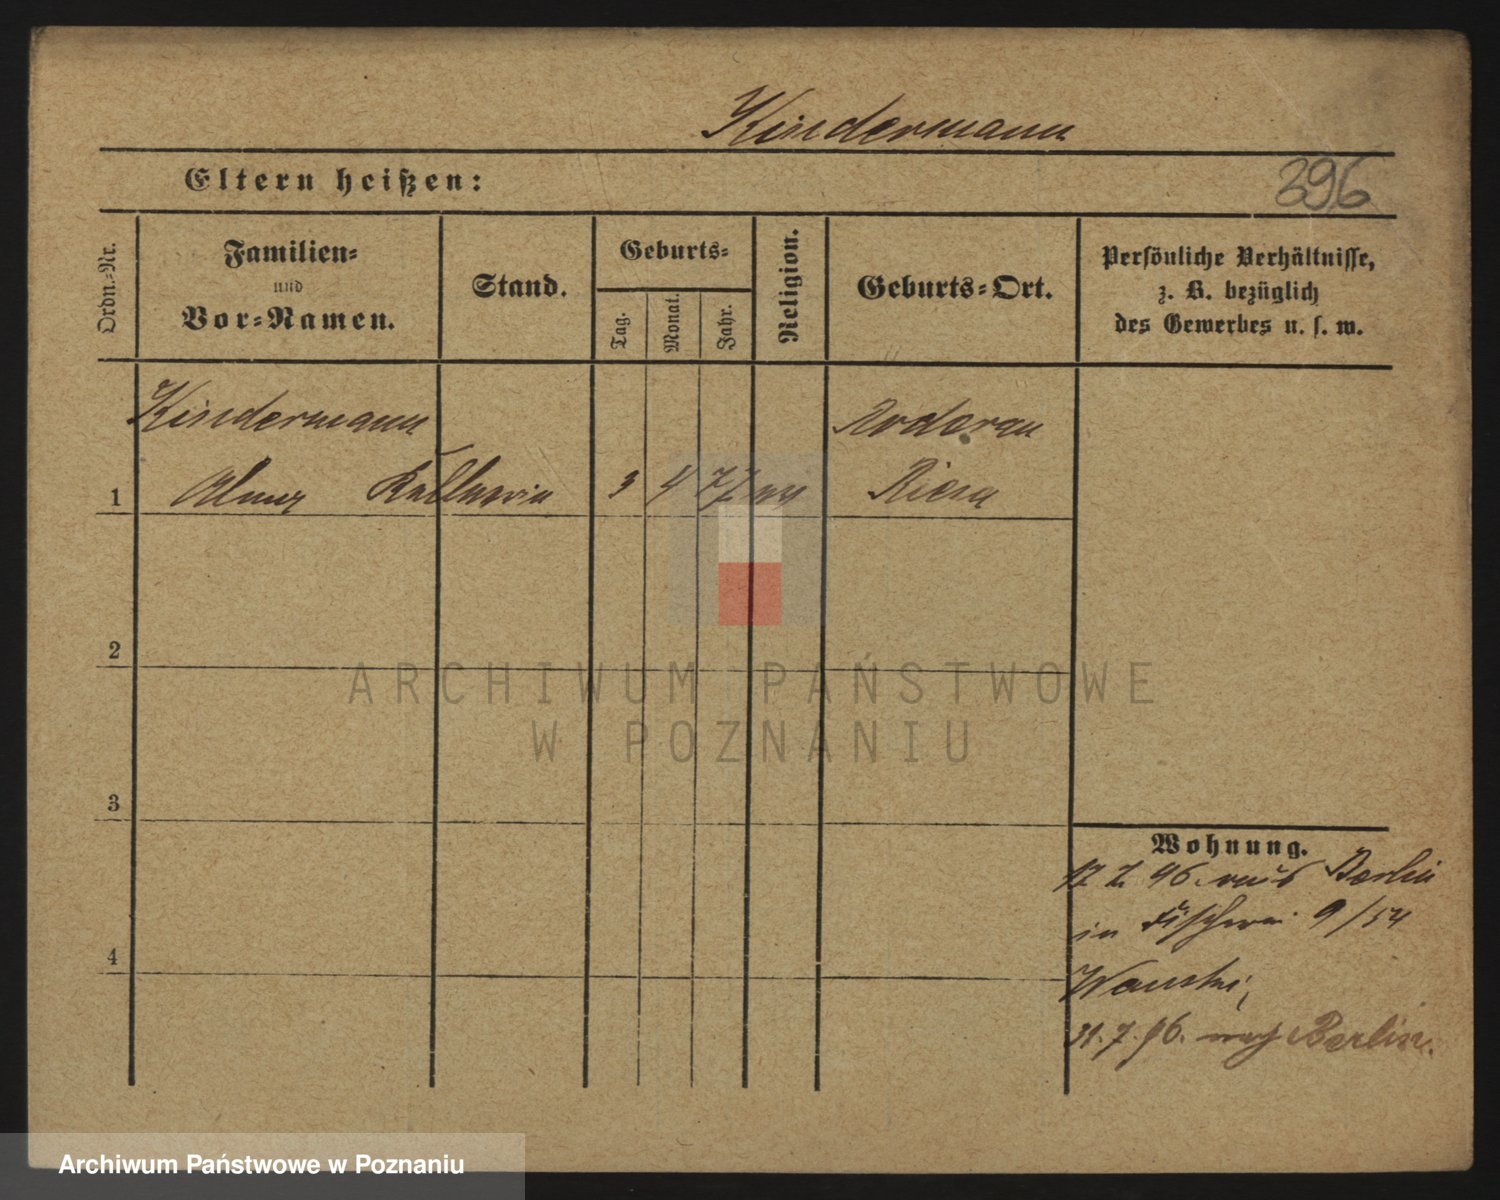 Kindermann
396
Eltern heißen:
Ordn.-Nr.
Familien-
und
Vor-Namen.
Stand.
Geburts-
Tag.
Monat.
Jahr.
Religion.
Geburts-Ort.
Persönliche Verhältnisse,
z. B. bezüglich
des Gewerbes u. s. w.
Kindermann
1 Kellnerin 3 4 77 ev Riesa
2
ARCHIWUM PAŃSTWOWE
W POZNANIU
3
Wohnung.
17. 7. 96. aus Berlin
in Fischerei 9/54
4
31. 7. 96. nach Berlin.
Archiwum Państwowe w Poznaniu